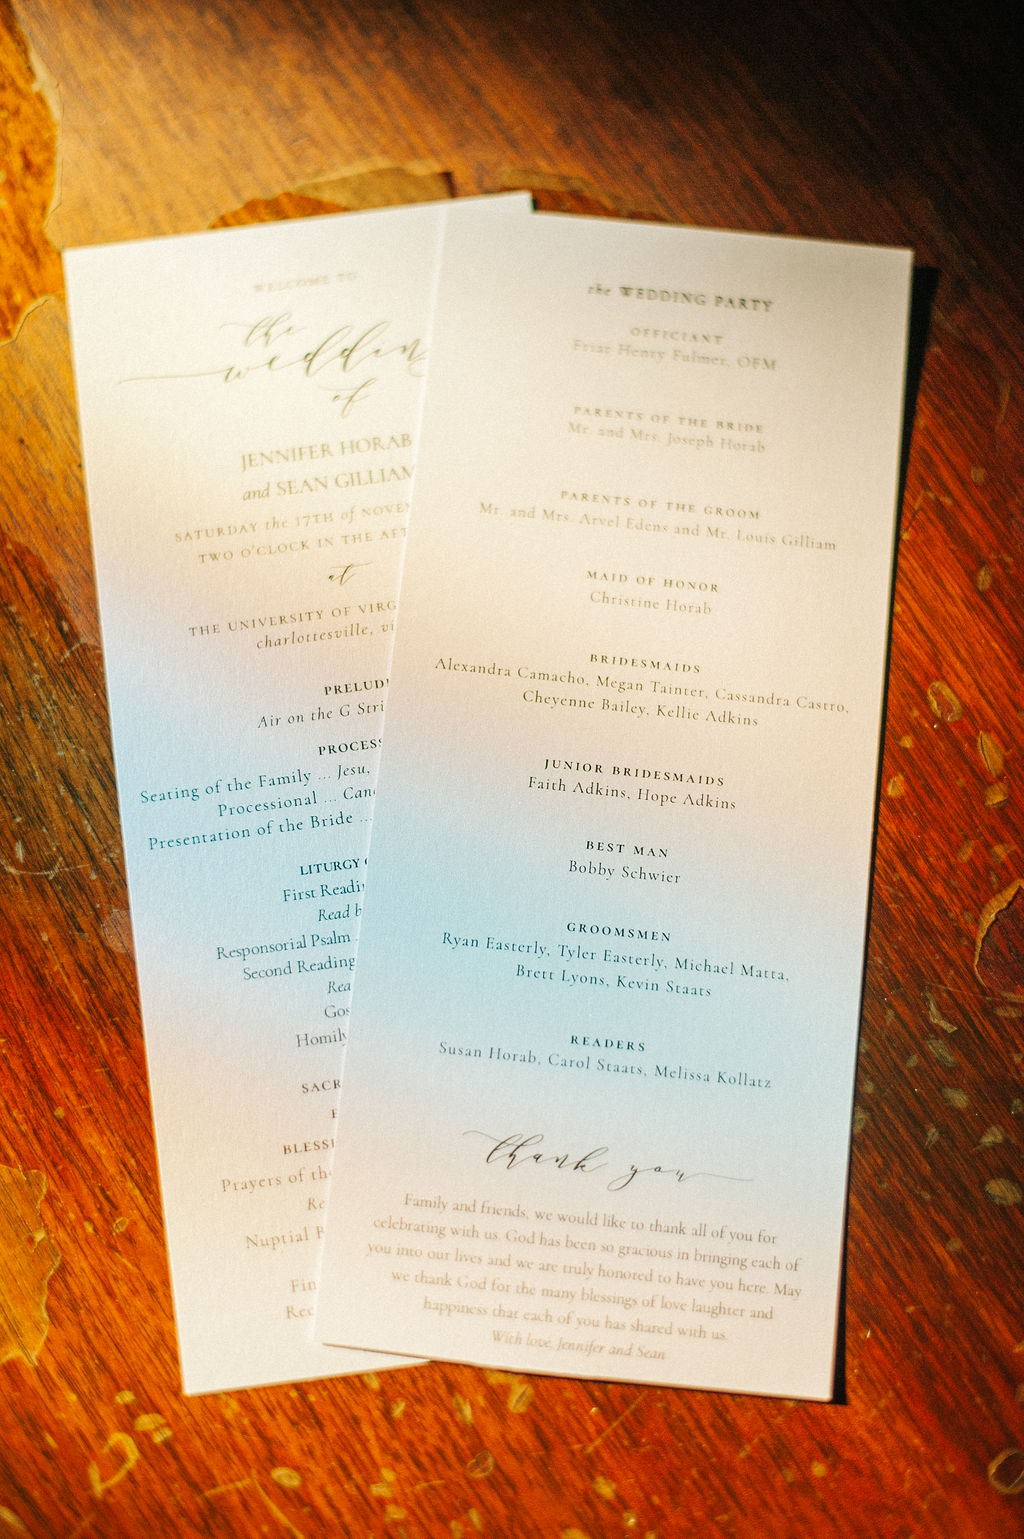 WELCOME TO
the
weddin
of
JENNIFER HORAB
and SEAN GILLIAM
SATURDAY the 17TH of NOVE
TWO O'CLOCK IN THE AFT
at
THE UNIVERSITY OF VIRG
charlottesville, vi
PRELUD
Air on the G Stri
PROCESS
Seating of the Family ... Jesu,
Processional ... Can
Presentation of the Bride ...
LITURGY
First Readi
Read b
Responsorial Psalm
Second Reading
Rea
Gos
Homily
SACR
BLESSI
Prayers of the
Re
Nuptial
Fin
Rec
the WEDDING PARTY
OFFICIANT
Friar Henry Fulmer, OFM
PARENTS OF THE BRIDE
Mr. and Mrs. Joseph Horab
PARENTS OF THE GROOM
Mr. and Mrs. Arvel Edens and Mr. Louis Gilliam
MAID OF HONOR
Christine Horab
BRIDESMAIDS
Alexandra Camacho, Megan Tainter, Cassandra Castro,
Cheyenne Bailey, Kellie Adkins
JUNIOR BRIDESMAIDS
Faith Adkins, Hope Adkins
BEST MAN
Bobby Schwier
GROOMSMEN
Ryan Easterly, Tyler Easterly, Michael Matta,
Brett Lyons, Kevin Staats
READERS
Susan Horab, Carol Staats, Melissa Kollatz
thank you
Family and friends, we would like to thank all of you for
celebrating with us. God has been so gracious in bringing each of
you into our lives and we are truly honored to have you here. May
we thank God for the many blessings of love laughter and
happiness that each of you has shared with us.
With love, Jennifer and Sean